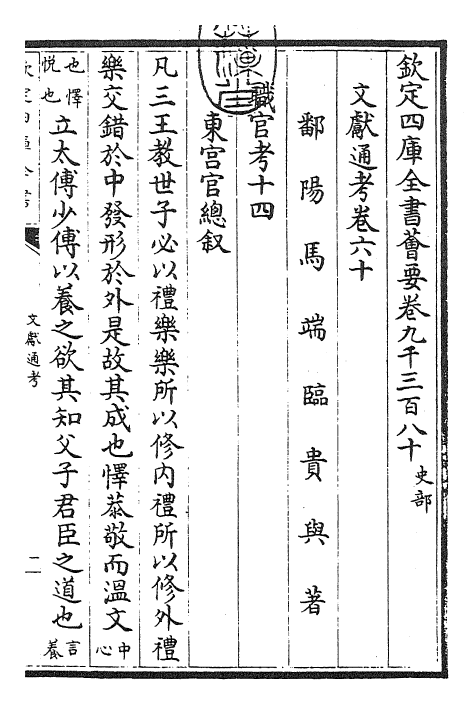 欽定四庫全書薈要卷九千三百八十 史部
文獻通考卷六十
鄱陽馬端臨貴與著
職官考十四
東宮官總叙
凡三王教世子必以禮樂樂所以修内禮所以修外禮
樂交錯於中發形於外是故其成也懌恭敬而溫文 中心
也懌悅也 立太傅少傅以養之欲其知父子君臣之道也 養言
文獻通考
二